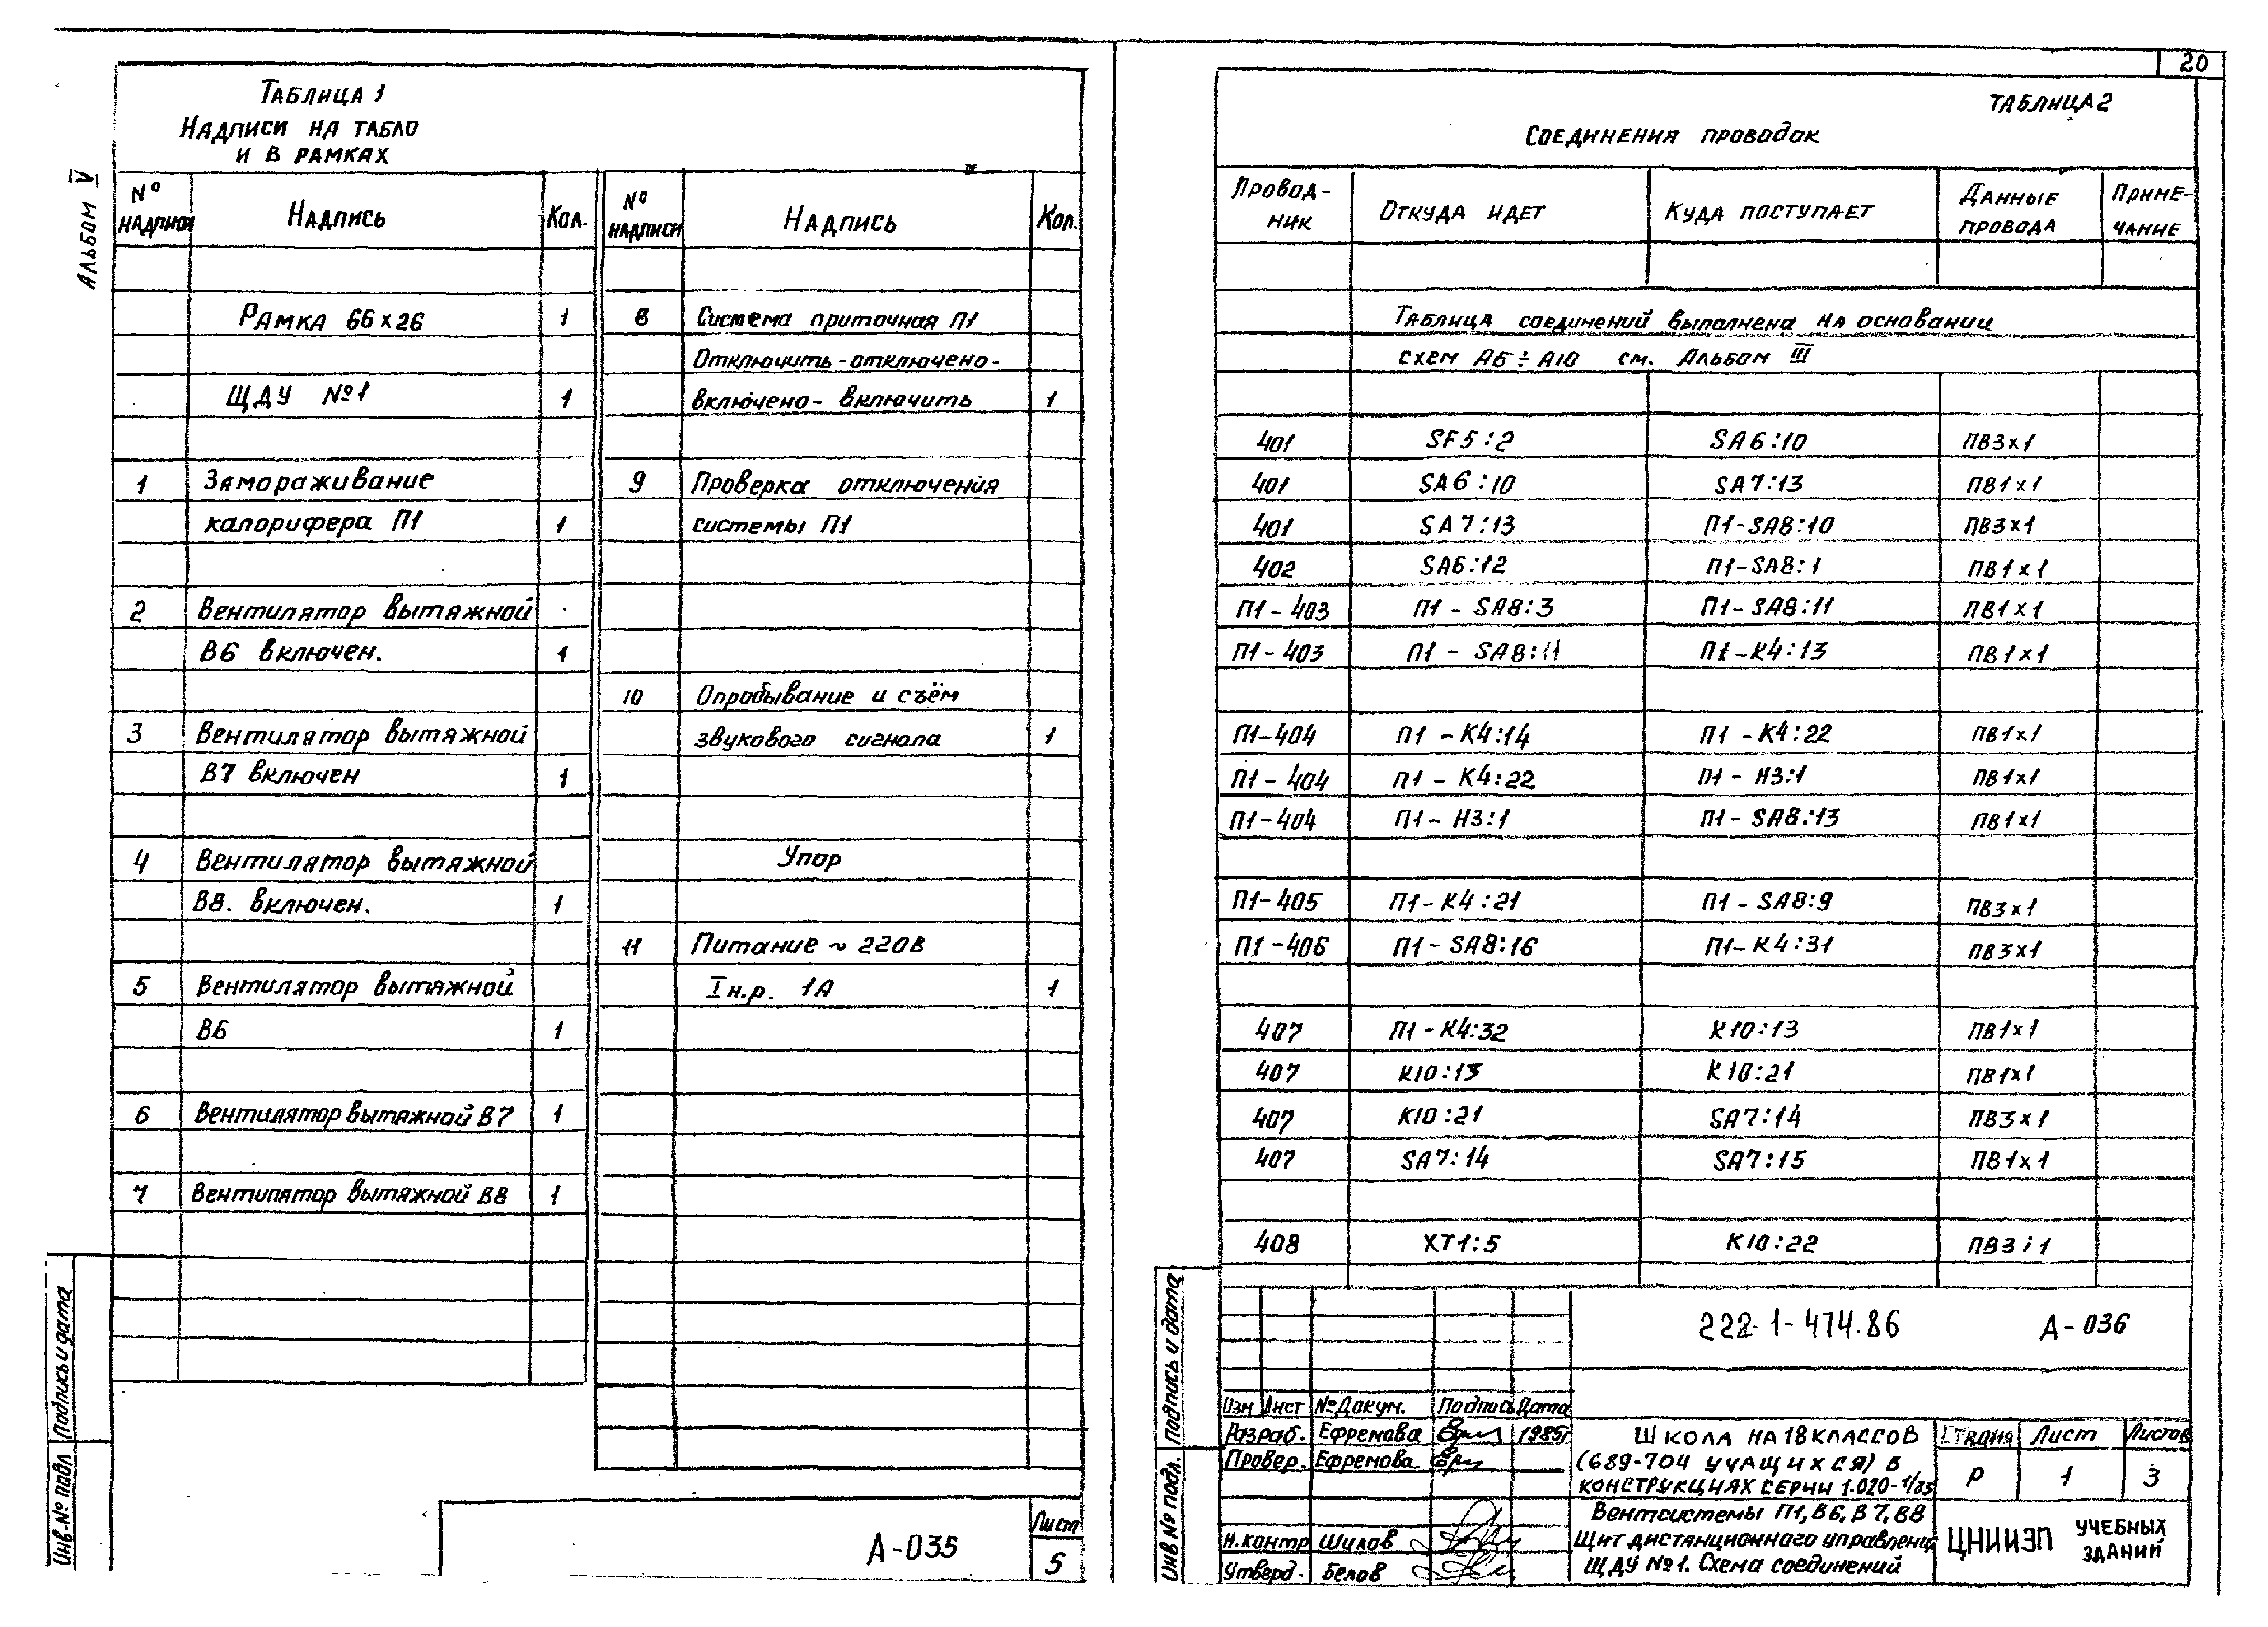 Альбом V
Таблица 1
Надписи на табло
и в рамках
№ надписи Надпись Кол.
Рамка 66х26 1
ЩДУ №1 1
1 Замораживание
калорифера П1 1
2 Вентилятор вытяжной
В6 включен. 1
3 Вентилятор вытяжной
В7 включен 1
4 Вентилятор вытяжной
В8. включен. 1
5 Вентилятор вытяжной
В6 1
6 Вентилятор вытяжной В7 1
7 Вентилятор вытяжной В8 1
№ надписи Надпись Кол.
8 Система приточная П1
Отключить-отключено-
включено-включить 1
9 Проверка отключения
системы П1
10 Опробывание и съём
звукового сигнала 1
Упор
11 Питание ~ 220В
Iн.р. 1А 1
Подпись и дата
Инв.№ подл
А-035
Лист
5
20
Таблица 2
Соединения проводок
Проводник Откуда идет Куда поступает Данные провода Примечание
Таблица соединений выполнена на основании
схем А6÷А10 см. Альбом III
401 SF5:2 SA6:10 ПВ3х1
401 SA6:10 SA7:13 ПВ1х1
401 SA7:13 П1-SA8:10 ПВ3х1
402 SA6:12 П1-SA8:1 ПВ1х1
П1-403 П1-SA8:3 П1-SA8:11 ПВ1х1
П1-403 П1-SA8:11 П1-К4:13 ПВ1х1
П1-404 П1-К4:14 П1-К4:22 ПВ1х1
П1-404 П1-К4:22 П1-Н3:1 ПВ1х1
П1-404 П1-Н3:1 П1-SA8:13 ПВ1х1
П1-405 П1-К4:21 П1-SA8:9 ПВ3х1
П1-406 П1-SA8:16 П1-К4:31 ПВ3х1
407 П1-К4:32 К10:13 ПВ1х1
407 К10:13 К10:21 ПВ1х1
407 К10:21 SA7:14 ПВ3х1
407 SA7:14 SA7:15 ПВ1х1
408 ХТ1:5 К10:22 ПВ3х1
Подпись и дата
Инв № подл.
222-1-474.86 А-036
Изм Лист № Докум. Подпись Дата
Разраб. Ефремова 1985г
Провер. Ефремова
Н.контр Шилов
Утверд. Белов
Школа на 18 классов
(689-704 учащихся) в
конструкциях серии 1.020-1/83
Вентсистемы П1, В6, В7, В8
Щит дистанционного управления
ЩДУ №1. Схема соединений
Стадия Лист Листов
Р 1 3
ЦНИИЭП учебных
зданий